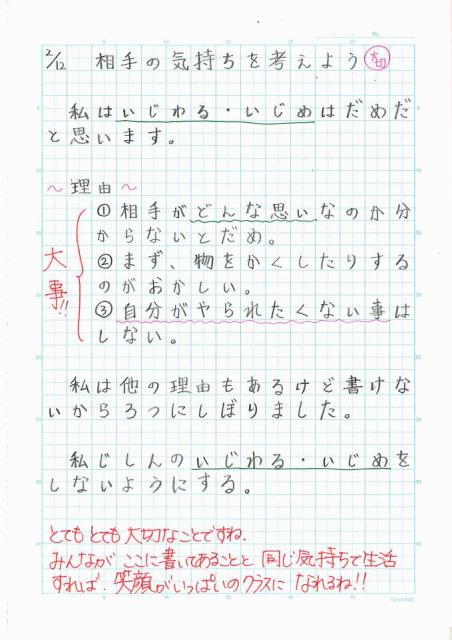 2/12 相手の気持ちを考えよう 大切
私はいじわる・いじめはだめだ
と思います。
～理由～
①相手がどんな思いなのか分
からないとだめ。
②まず、物をかくしたりする
のがおかしい。
③自分がやられたくない事は
しない。
大事!!
私は他の理由もあるけど書けな
いから3つにしぼりました。
私じしんのいじわる・いじめを
しないようにする。
とてもとても大切なことですね.
みんながここに書いてあることと同じ気持ちで生活
すれば.笑顔がいっぱいのクラスになれるね!!